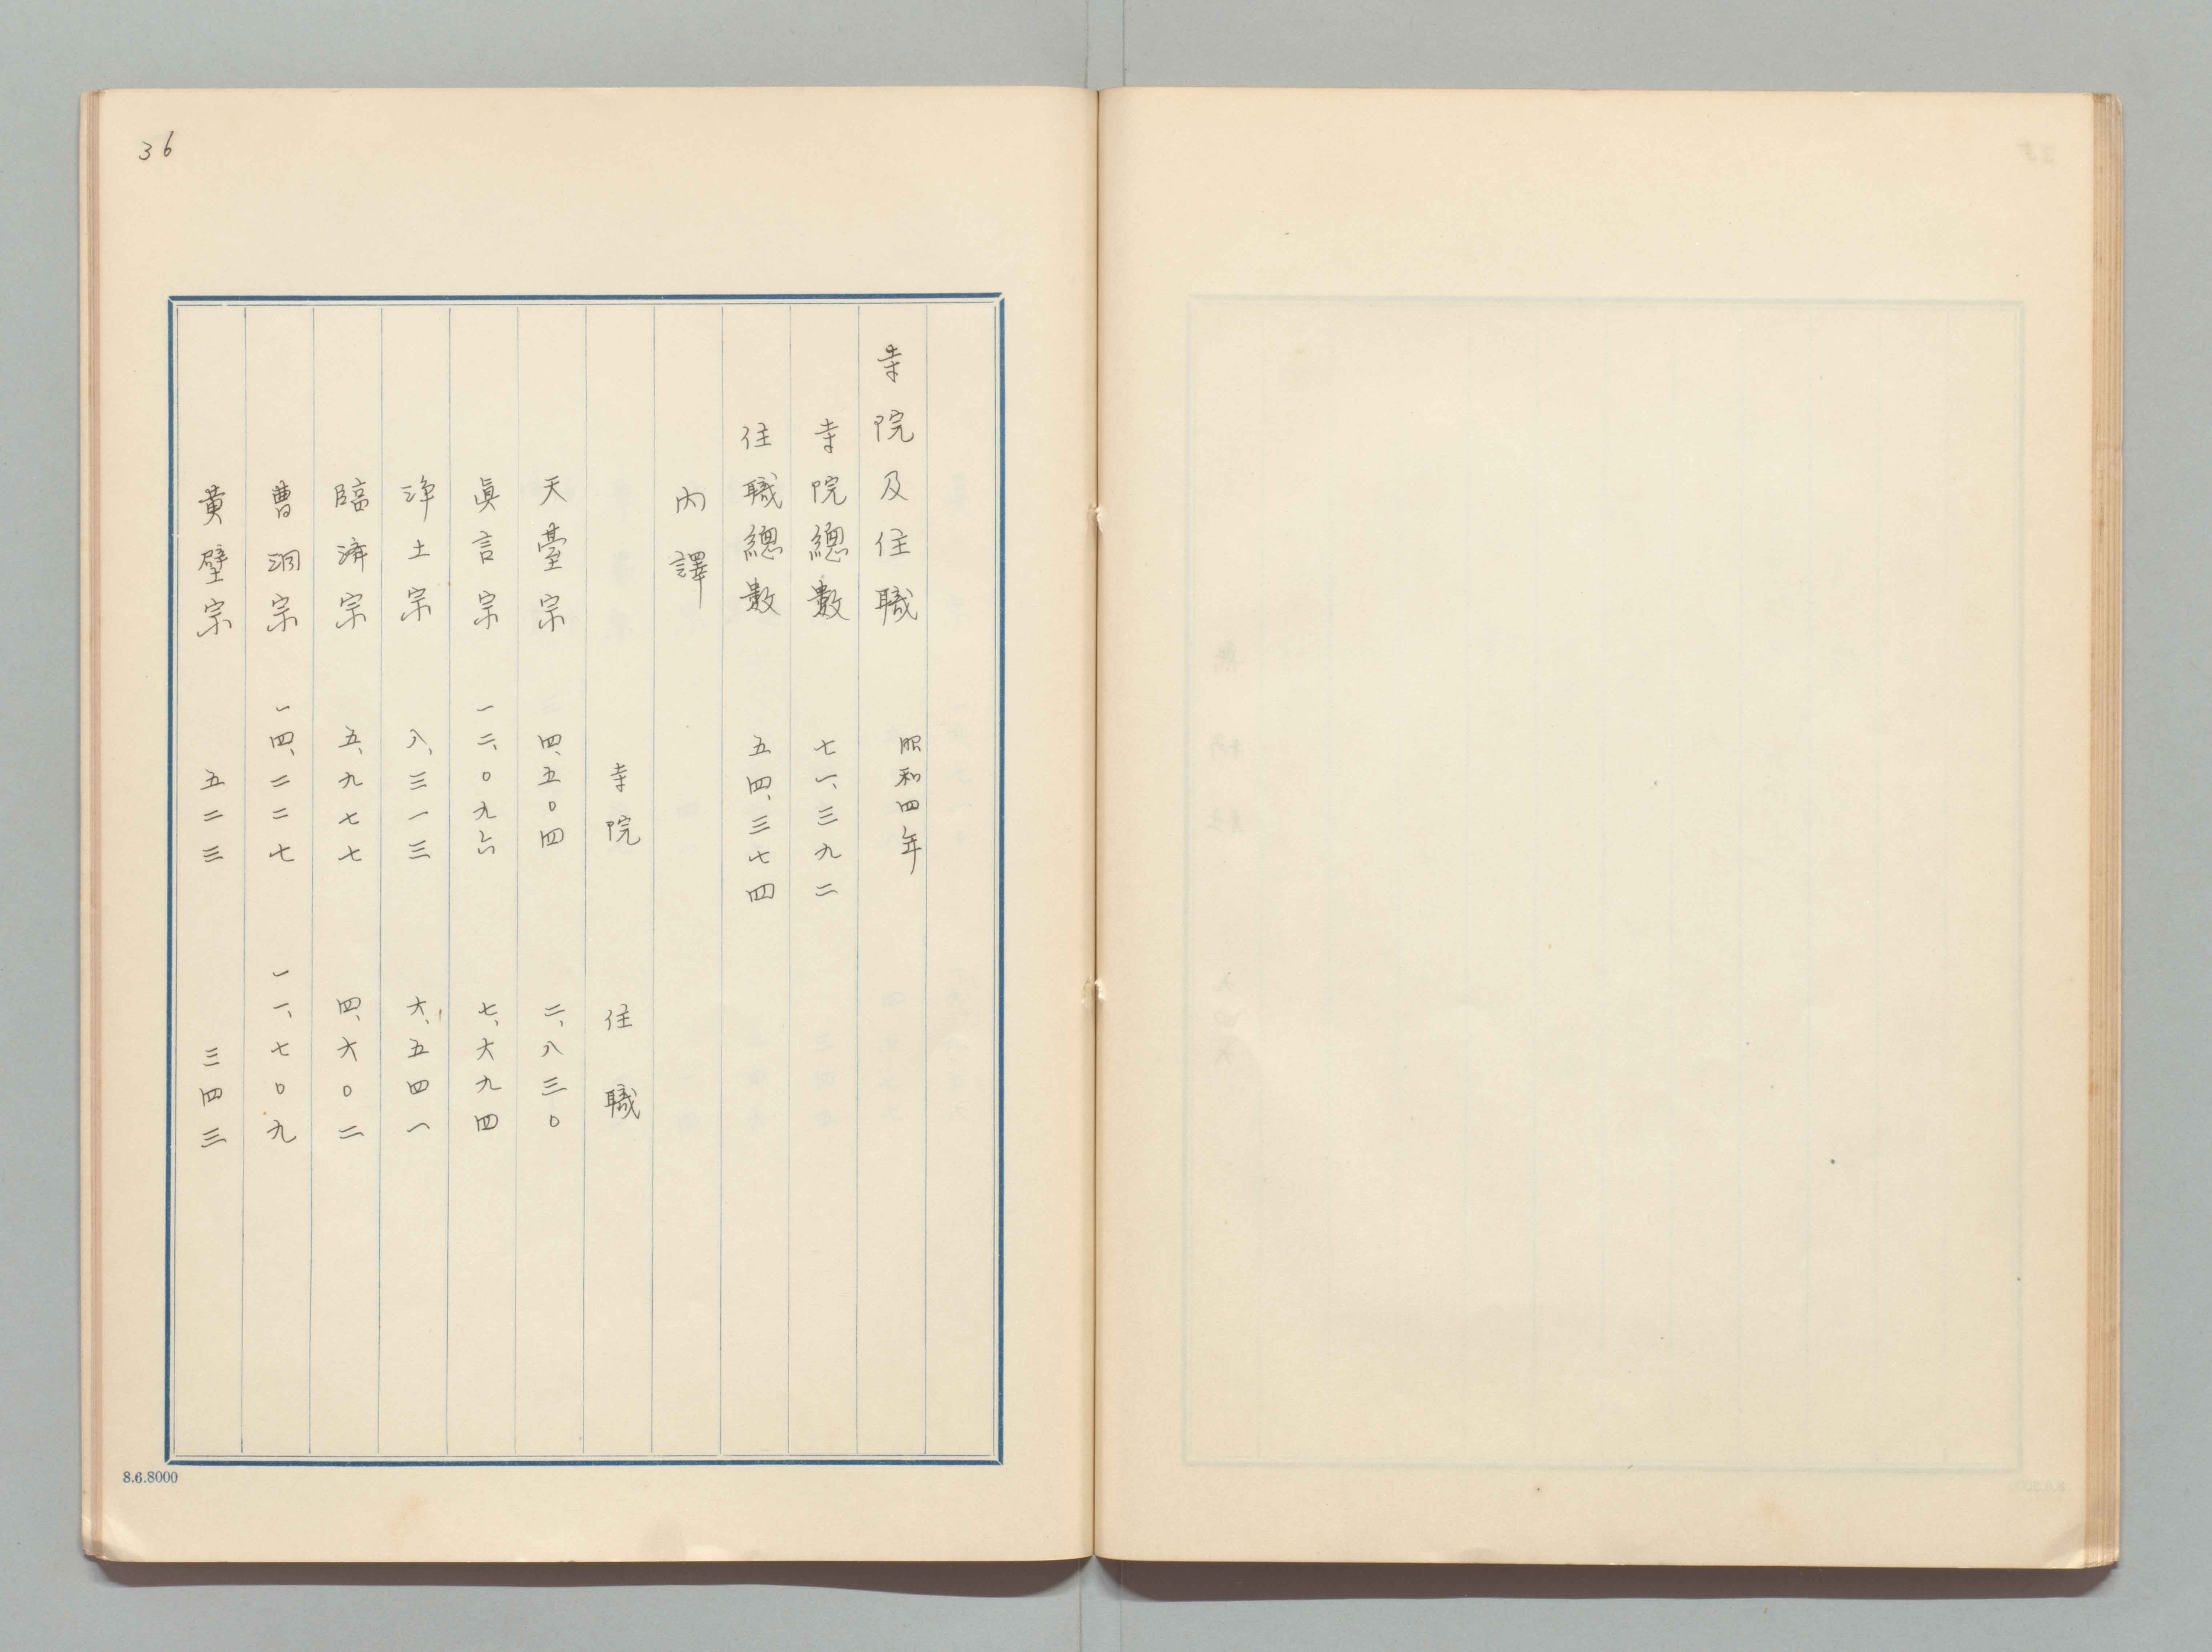 36
寺院及住職 昭和四年
寺院總數 七一、三九二
住職總數 五四、三七四
內譯
寺院 住職
天臺宗 四、五〇四 二、八三〇
眞言宗 一二、〇九六 七、六九四
浄土宗 八、三一三 六、五四一
臨済宗 五、九七七 四、六〇二
曹洞宗 一四、二二七 一一、七〇九
黃壁宗 五二三 三四三
8.6.8000